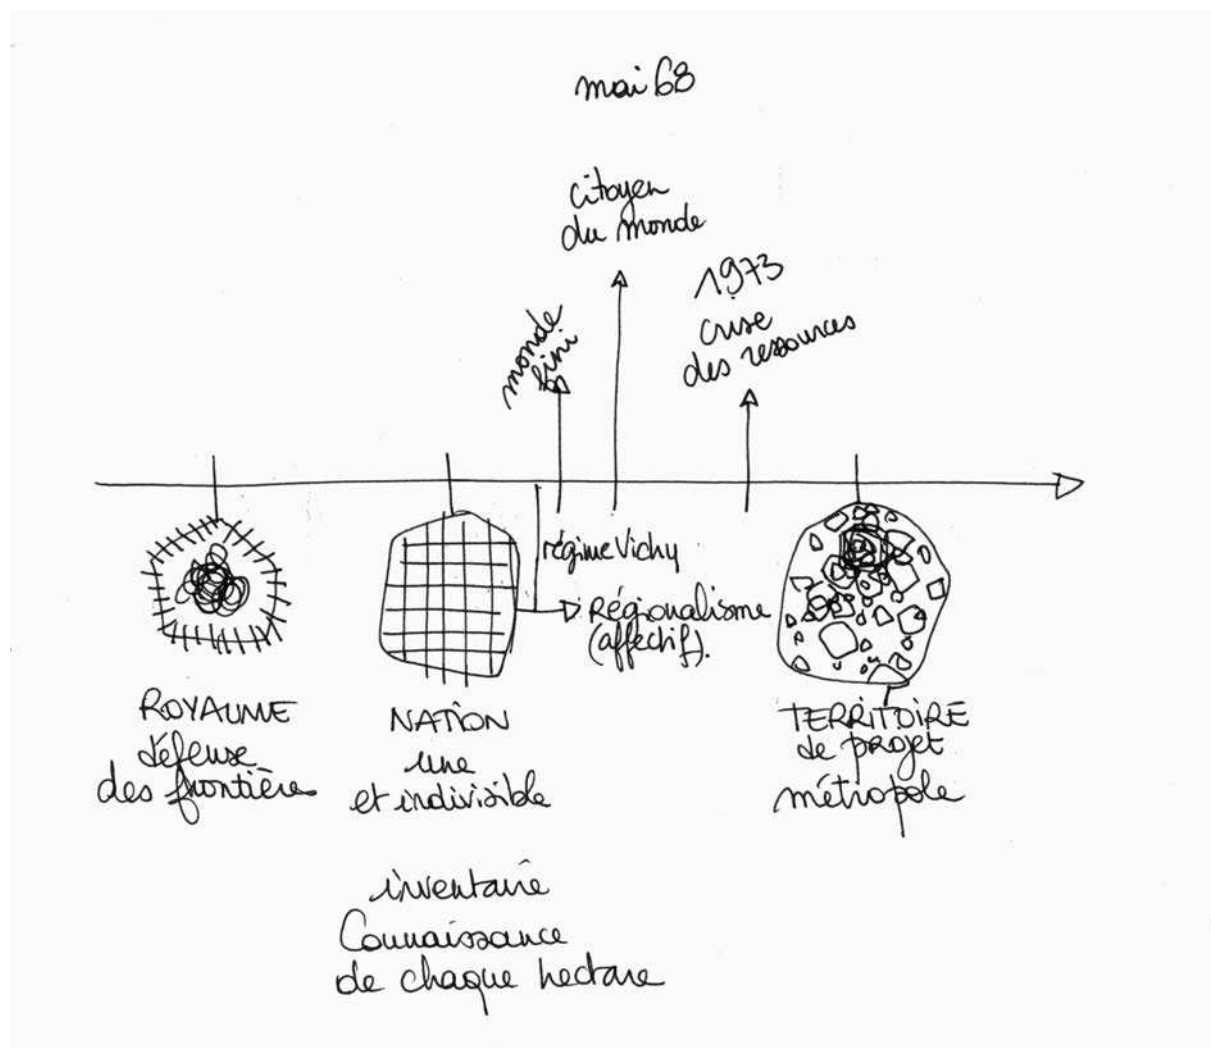 mai 68
citoyen
du monde
1973
crise
des ressources
monde
fini
régime Vichy
Régionalisme
(affectif).
ROYAUME
défense
des frontières
NATION
une
et indivisible
TERRITOIRE
de projet
métropole
inventaire
Connaissance
de chaque hectare